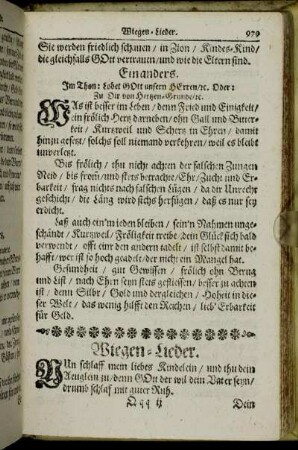 Wiegen-Lieder. 979
Sie werden friedlich schauen / in Zion / Kindes-Kind/
die gleichfalls GOtt vertrauen/ und wie die Eltern sind.
Ein anders.
Im Thon: Lobet GOtt unsern HErren/ꝛc. Oder:
Zu Dir von Hertzen-Grunde/ꝛc.
WAs ist besser im Leben / denn Fried und Einigkeit/
ein frölich Hertz darneben / ohn Gall und Bitter-
keit / Kurtzweil und Schertz in Ehren / damit
hinzu gesetzt / solchs soll niemand verkehren / weil es bleibt
unverletzt.
Biß frölich / thu nicht achten der falschen Zungen
Neid / biß fromm/ und stets betrachte/ Ehr/ Zucht und Er-
barkeit / frag nichts nach falschen Lügen / da dir Unrecht
geschicht / die Läng wird sichs herfügen / daß es nur sey
erdicht.
Laß auch ein'm jeden bleiben / sein'n Nahmen unge-
schändt / Kurtzweil / Fröligkeit treibe / dein Glück sich bald
verwendt / offt eine den andern tadelt / ist selbst damit be-
hafft/ wer ist so hoch geadelt/ der nicht ein Mangel hat.
Gesundheit / gut Gewissen / frölich ohn Betrug
und List / nach Ehrn seyn stets geflissen / besser zu achten
ist / denn Silbr / Gold und dergleichen / Hoheit in die-
ser Welt / das wenig hilfft den Reichen / lieb' Erbarkeit
für Geld.
Wiegen-Lieder.
NUn schlaff mein liebes Kindelein / und thu dein
Aeuglein zu/ denn GOtt der wil dein Vater seyn/
drumb schlaf mit guter Ruh.
Qqq ij Dein